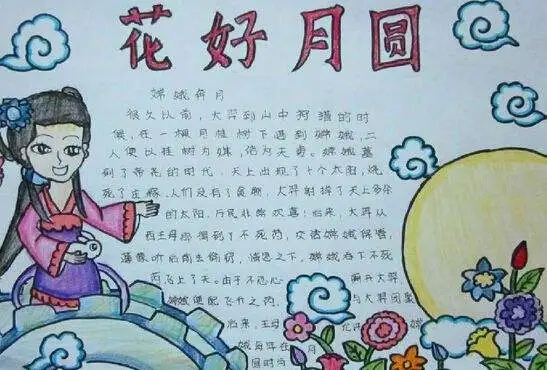 花好月圆
嫦娥奔月
很久以前，大羿到山中狩猎的时
候，在一棵月桂树下遇到嫦娥，二
人便以桂树为媒，结为夫妻。嫦娥
到了帝尧的时代，天上出现了十个太阳，烧
死了庄稼，人们没有了食物，大羿射掉了天上多余
的太阳，万民非常欢喜；后来，大羿从
西王母那得到了不死药，交给嫦娥保管，
逢蒙听后前去偷窃，情急之下，嫦娥吞下不死
药飞上了天。由于不忍心离开大羿，
嫦娥
与大羿团聚
后来，
嫦
娥每年在月
圆时